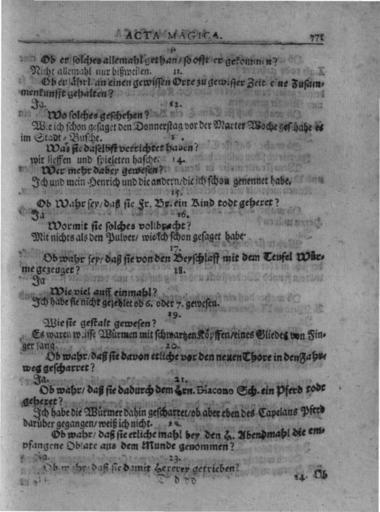 ACTA MAGICA. 771
Ob er solches allemahl gethan / so offt er gekommen?
Nicht allemahl nur bißweilen. 11.
Ob er ährl. an einen gewissen Orte zu gewisser Zeit eine Zusam-
menkunfft gehalten?
Ja. 12.
Wo solches geschehen?
Wie ich schon gesaget den Donnerstag vor der Marter Woche geschahe es
im Stadt-Busche.
Was sie daselbst verrichtet haben?
wir lieffen und spieleten hasche. 14.
Wer mehr dabey gewesen?
Ich und mein Henrich und die andern / die ich schon genennet habe.
15.
Ob Wahr sey / daß sie Fr. Br. ein Kind todt gehext?
Ja 16.
Wormit sie solches vollbracht?
Mit nichts als den Pulver / wie ich schon gesaget habe
17.
Ob wahr sey / daß sie von den Beyschlaff mit dem Teufel Wür-
me gezeuget? 18.
Ja
Wie viel auff einmahl?
Ich habe sie nicht gezehlet ob 6. oder 7. gewesen.
19.
Wie sie gestalt gewesen?
Es waren weisse Würmen mit schwartzen Köpffen / eines Gliedes von Fin-
ger lang. 20.
Ob wahr / daß sie davon etliche vor den neuen Thore in den Fahr-
weg gescharret?
Ja. 21.
Ob wahr / daß sie dadurch dem Hrn. Diacono Sch. ein Pferd todt
gehexet?
Ich habe die Würmer dahin gescharret / ob aber eben des Capelans Pferd
darüber gegangen / weiß ich nicht.
Ob wahr / daß sie etliche mahl bey den H. Abendmahl die em-
pfangene Oblate aus dem Munde genommen?
Ja. 23.
Ob wahr / daß sie damit Hexerey getrieben?
D d d d 24. Ob